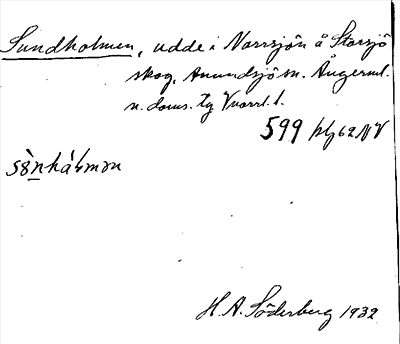 Sundholmen, udde i Norrsjön å Storsjö
skog, Anundsjö sn. Ångerml.
n. doms. tg Vnorrl. l.
599 blg 62 NV
H. A. Söderberg 1932